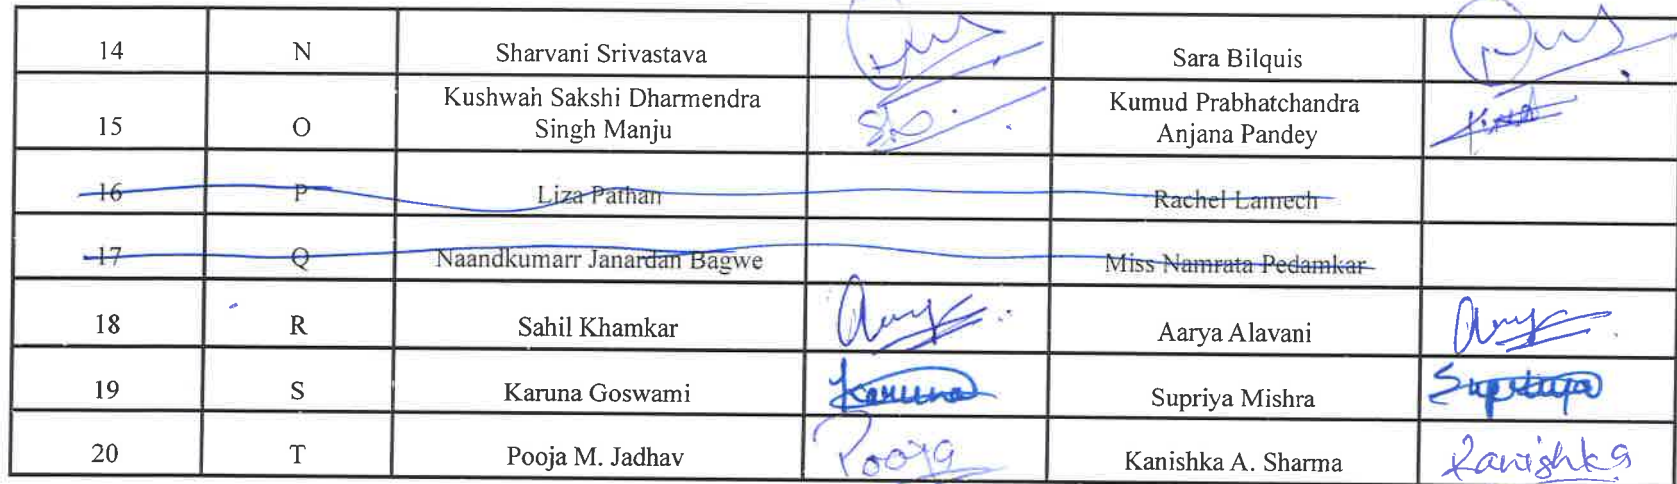 14 N Sharvani Srivastava Sara Bilquis
15 O Kushwah Sakshi Dharmendra Singh Manju Kumud Prabhatchandra Anjana Pandey
16 P Liza Pathan Rachel Lamech
17 Q Naandkumarr Janardan Bagwe Miss Namrata Pedamkar
18 R Sahil Khamkar Aarya Alavani
19 S Karuna Goswami Karuna Supriya Mishra Supriya
20 T Pooja M. Jadhav Pooja Kanishka A. Sharma Kanishka